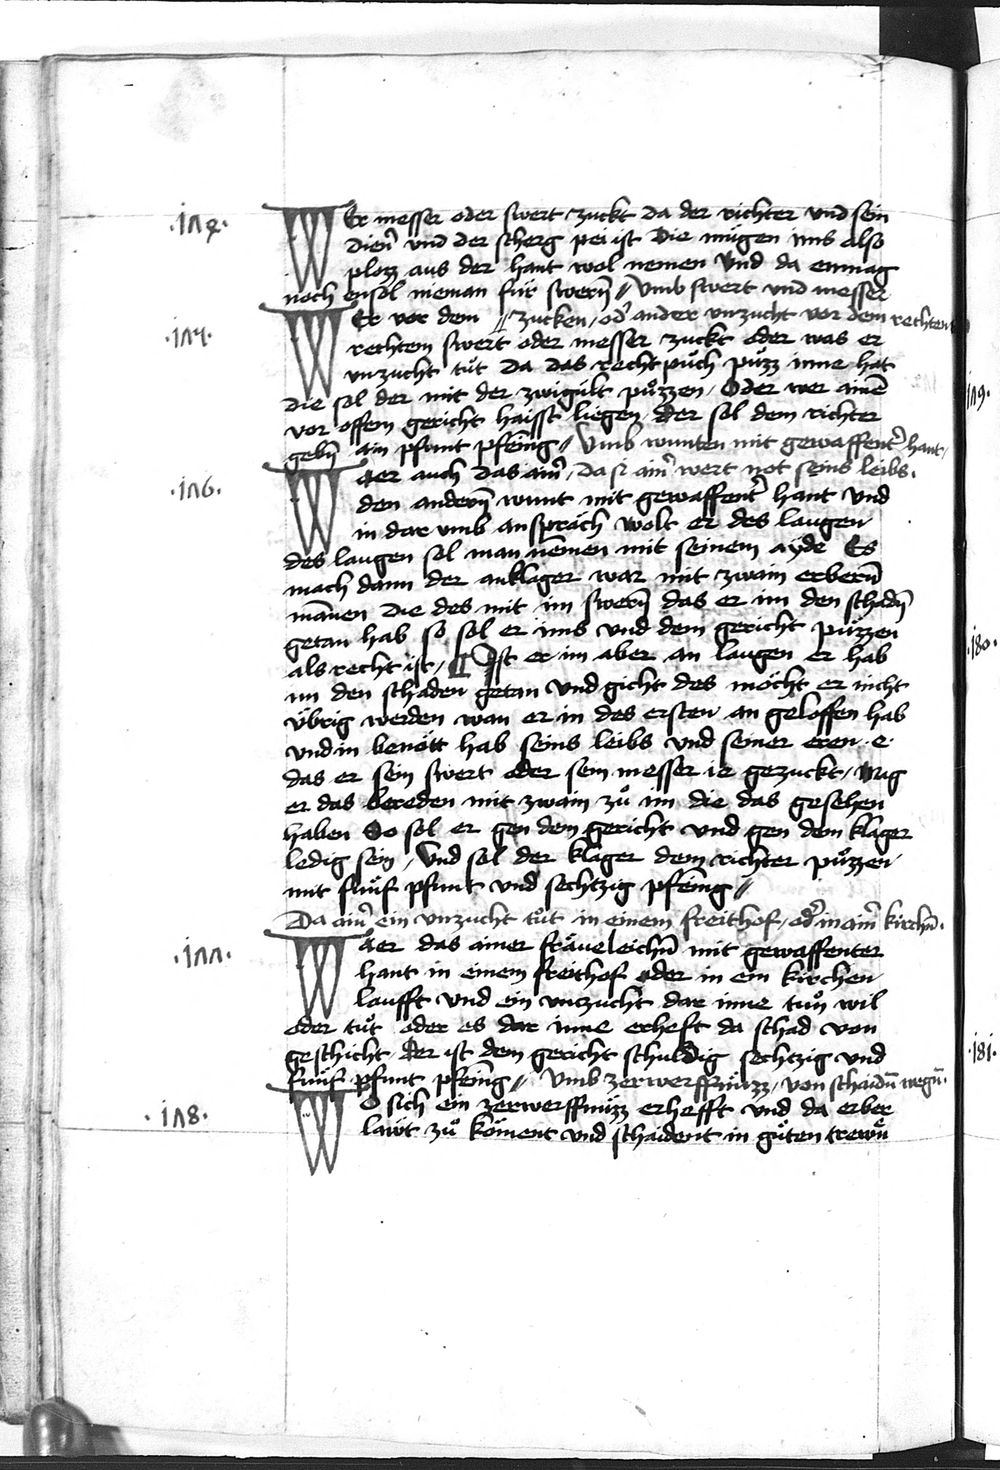 ·174· WEr messer oder swert zuckt da der richter und sein
dienr̄ und der scherg pei ist die mügen ims also
plozz aus der hant wol nemen Und da enmag
noch ensol nieman für swern̄ // Umb swert und messer
·175· WEr vor dem // zucken / od̄ ander vnzucht vor dem rechten
rechtem swert oder messer zuckt oder was er
vnzucht tůt da das rechtpůch půzz inne hat
die sol der mit der zwigült půzzen / Oder wer ainē
vor offem gericht haisst liegen / der sol dem richter
gebn̄ ain pfunt pfēing // Umb wunten mit gewaffentr̄ hant /
·176· Waer auch das ainr̄ / da zi ainr̄ wert not seins leibs ·
den andern̄ wunt mit gewaffentr̄ hant und
in dar umb anspräch wolt er des laugen
des laugen sol man nēmen mit seinem ayde Es
mach dann der anklager war mit zwain erbern̄
mānen die des mit im swern̄ das er im den schadn̄
getan hab so sol er ims und dem gericht půzzen
als recht ist / Ist er im aber an laugen er hab
im den schaden getan und gicht des möcht er nicht
übrig werden wan er in des ersten an geloffen hab
und in benött hab seins leibs und seiner eren · e ·
das er sein swert oder sein messer ie gezuckt / Mag
er das bereden mit zwain zů im die das gesehen
haben So sol er gen dem gericht und gen dem klager
ledig sein / Und sol der klager dem richter půzzen
mit fünf pfunt und sechtzig pfēing //
Da ainr̄ ein vnzucht tůt in einem freithof / od̄ in ainr̄ kirchn̄ ·
·177· Waer das ainer fräveleichn̄ mit gewaffenter
hant in einem freithof oder in ein kirchen
laufft und ein vnzucht dar inne tůn wil
oder tůt oder es dar inne erheft da schad von
geschicht / der ist dem gericht schuldig sechtzig und
fünf pfunt pfēing // Umb zerwerffnüzz / von schaidn̄ wegn̄ ·
·178· WO sich ein zerwerffnüzz erhefft und da erber
läwt zů köment und schaident in gůten trewn̄
179·
·180·
·181·